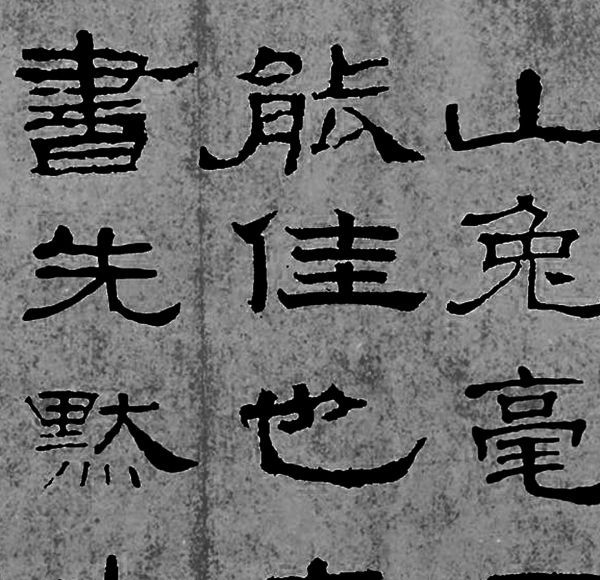 山兔毫
能佳也
書先默